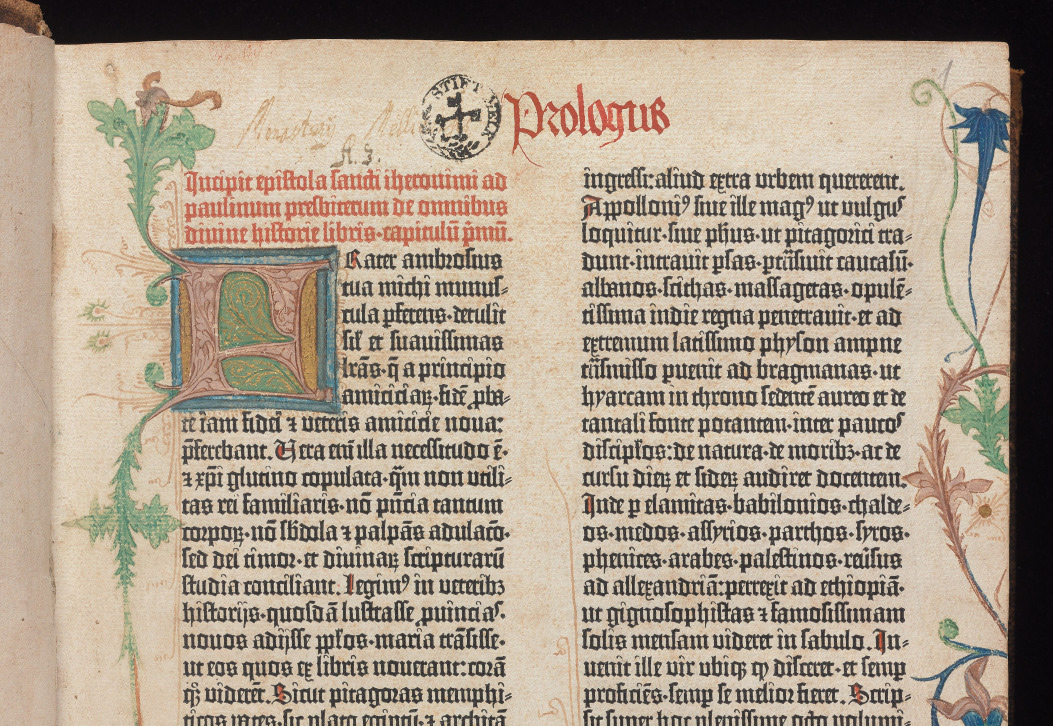 Monasterij
STIFT MELK
Prologus
Incipit epistola sancti iheronimi ad
paulinum presbiterum de omnibus
divine historie libris·capitulũ p̃mũ.
FRater ambrosius
tua michi munus-
cula ꝑferens·detulit
sil̃ et suavissimas
lr̃as·q̃ a principio
amiciciaꝝ·fidẽ ꝓba-
te iam fidei ⁊ veteris amicicie nova:
p̃ferebant. Vera em̃ illa necessitudo ẽ·
⁊ xp̃i glutino copulata·q̃m non utili-
tas rei familiaris·nõ pñcia tantum
corpoꝝ·nõ sb̃dola ⁊ palpãs adulacõ·
sed dei timor·et divinaꝝ scripturarũ
studia conciliant. Legimꝰ in veteribꝫ
historijs·quosdã lustrasse ꝓvinciaſ·
novos adijsse ppl̃os·maria trãsisse·
ut eos quos ex libris noverant: corã
qꝫ viderẽt. Sicut pitagoras memphi-
ticos vates·sic plato egiptũ·⁊ architã
ingressi: aliud extra urbem quererent.
Appolloniꝰ sive ille magꝰ ut vulgus
loquitur·sive ph̃us·ut pitagorici tra-
dunt·intravit ꝑsas·ꝑtrãsivit caucasũ·
albanos·scithas·massagetas·opulẽ-
tissima indie regna penetravit·et ad
extremum latissimo physon ampne
trãsmisso ꝑvenit ad bragmanas·ut
hyarcam in throno sedentẽ aureo et de
tantali fonte potantem·inter paucos
discipl̃os: de natura·de moribꝫ·ac de
cursu dieꝝ et sideꝝ audiret docentem.
Inde ꝑ elamitas·babilonios·chalde-
os·medos·assyrios·parthos·syros·
phenices·arabes·palestinos·reṽsus
ad allexandriã: perrexit ad ethiopiã·
ut gignosophistas ⁊ famosissimam
solis mensam videret in sabulo. In-
venit ille vir ubiqꝫ qđ disceret·et semꝑ
proficiẽs·semꝑ se melior fieret. Scrip-
sit super hoc plenissime octo volumi-